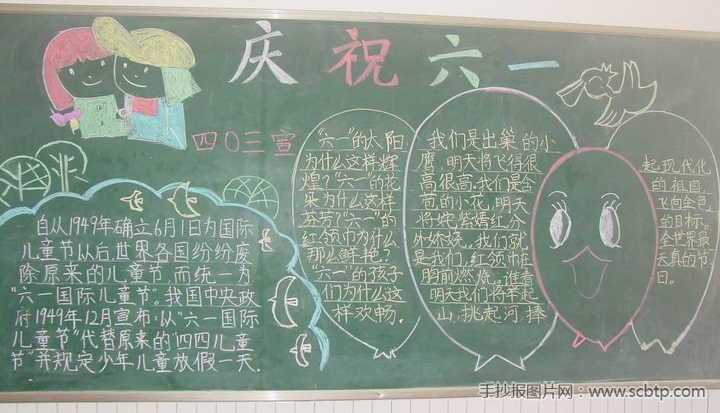 庆祝六一
四〇三宣
自从1949年确立6月1日为国际
儿童节以后,世界各国纷纷废
除原来的儿童节,而统一为
“六一国际儿童节”。我国中央政
府1949年12月宣布:以“六一国际
儿童节”代替原来的“四四儿童
节”并规定少年儿童放假一天.
“六一”的太阳
为什么这样辉
煌?“六一”的花
朵为什么这样
芬芳?“六一”的
红领巾为什么
那么鲜艳?
“六一”的孩子
们为什么这
样欢畅.
我们是出巢的小
鹰,明天将飞得很
高很高.我们是含
苞的小花,明天
将姹紫嫣红,分
外妖娆。我们就
是我们,红领巾在
胸前燃烧。谁看
明天我们将举起
山,挑起河,捧
起现代化
的祖国,
飞向金色
的目标。
全世界最
天真的节
日。
手抄报图片网:www.scbtp.com